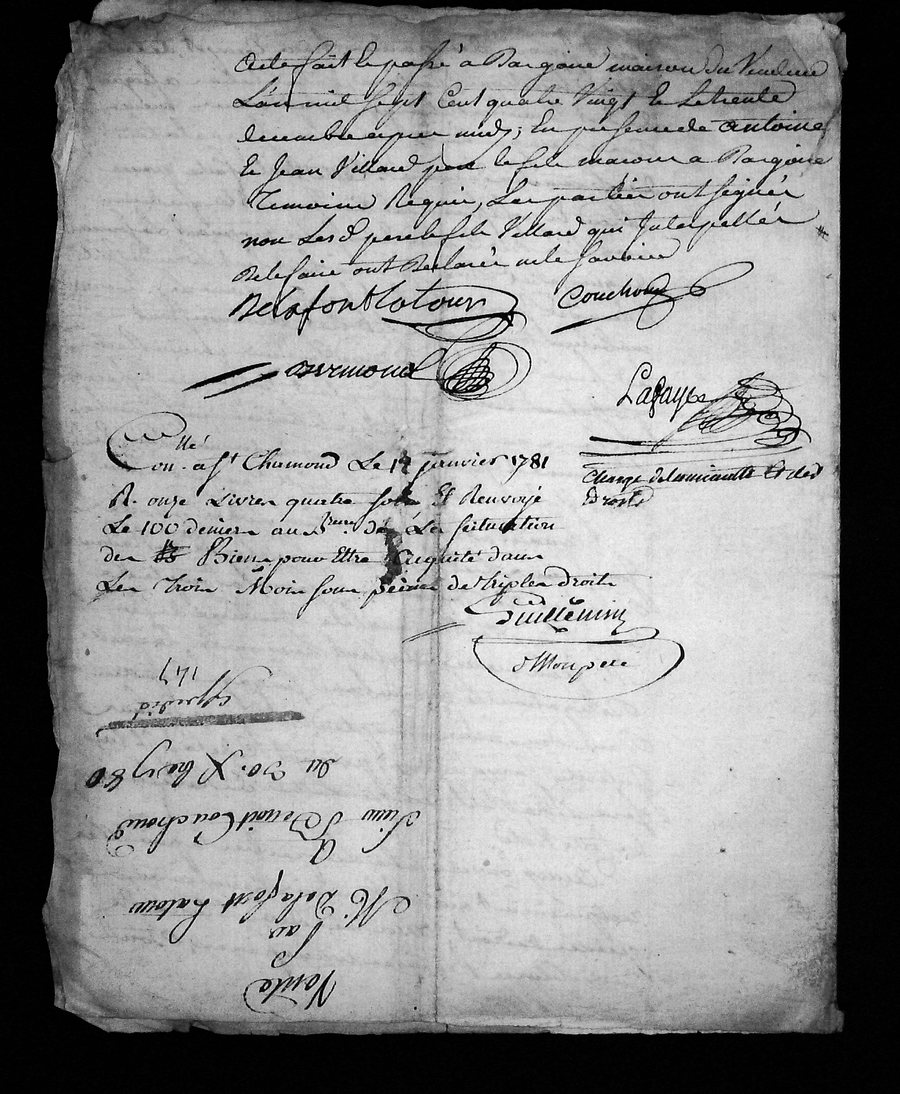 acte fait et passé à Bargoire maison du Vendeur
L'an mil sept Cent quatre Vingt et Le trente
decembre apres midy; En presence de antoine
Et Jean Villard pere et fils macons a Bargoire
Temoins Requis, Les parties ont signés
non Les d. pere et fils Villard qui Interpellés
De le faire ont Declarés ne le Savoir
Delafont Latour Couchoud
Lafaye
Con.llé a St Chamond Le 14 janvier 1781
R. onze Livres quatre sols Et Renvoyé
Le 100 denier au Bureau de La scituation
des Biens pour Etre acquité dans
Les Trois Mois sous peines de triples droits
Guillemin
charge de la minutte Et des
Droits
Vente
par
Mr Delafont Latour
a
Sieur Benoit Couchoud
du 30. Xbre 1780
Expedié
147